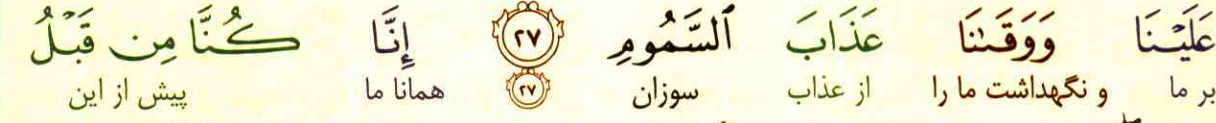 عَلَيْنَا وَوَقَىٰنَا عَذَابَ ٱلسَّمُومِ ٢٧ إِنَّا كُنَّا مِن قَبْلُ
بر ما و نگهداشت ما را از عذاب سوزان ٢٧ همانا ما پیش از این